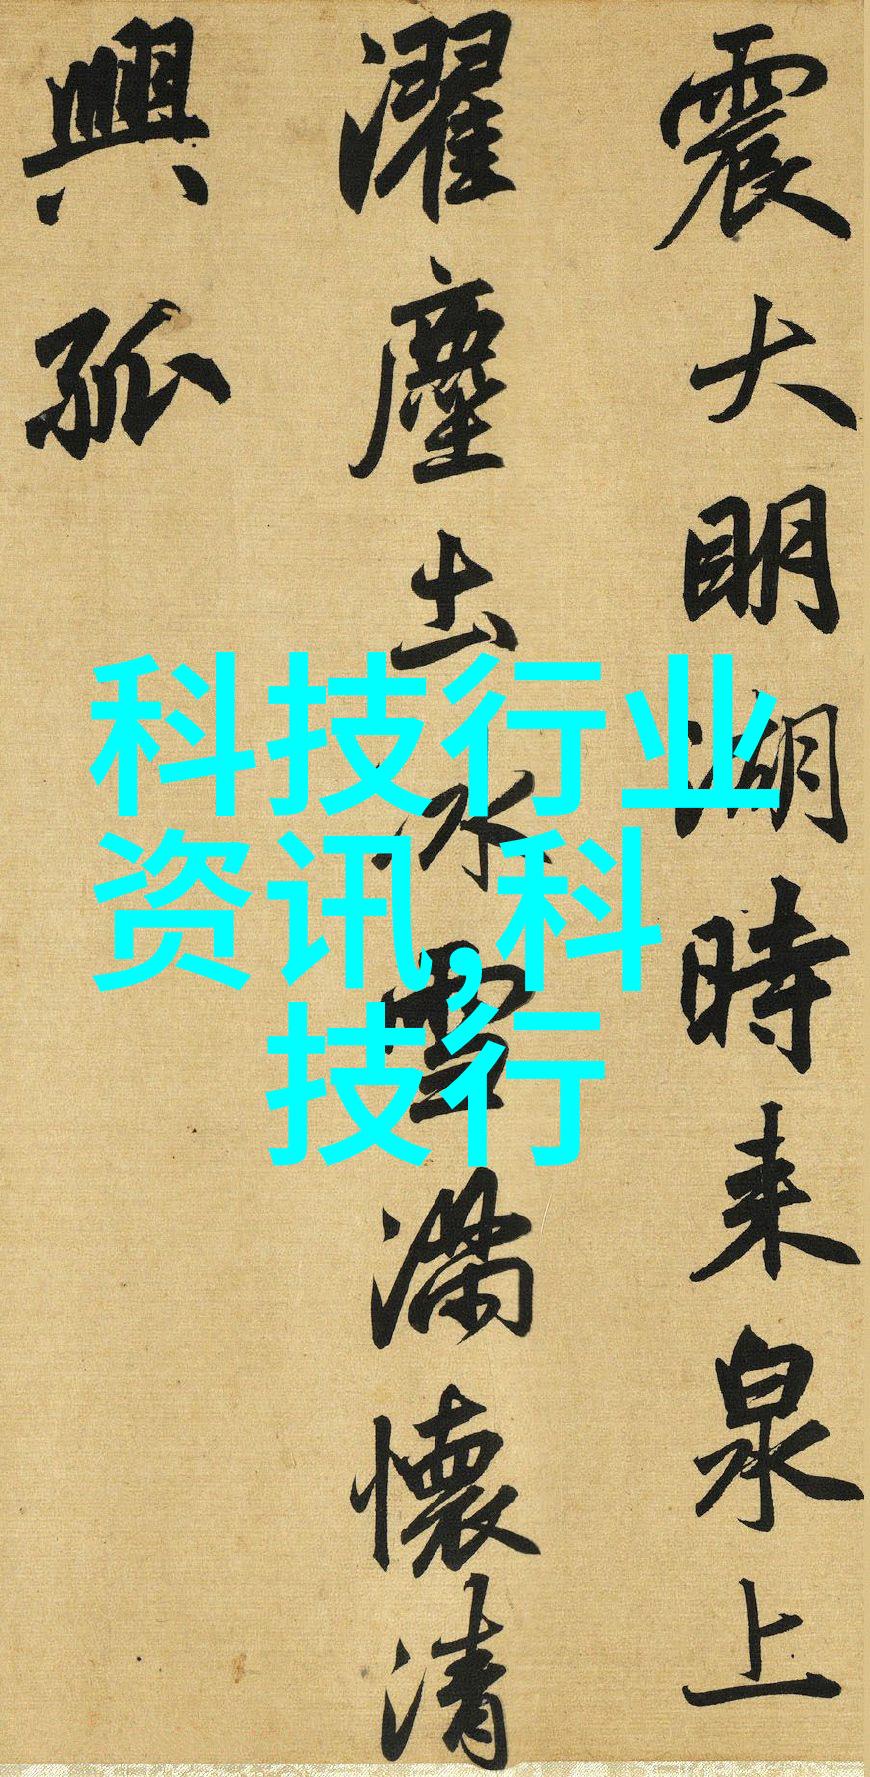 震大明湖時来泉上
濯塵出冰雪滿懷清
興孤
科技行业
资讯,科
技行